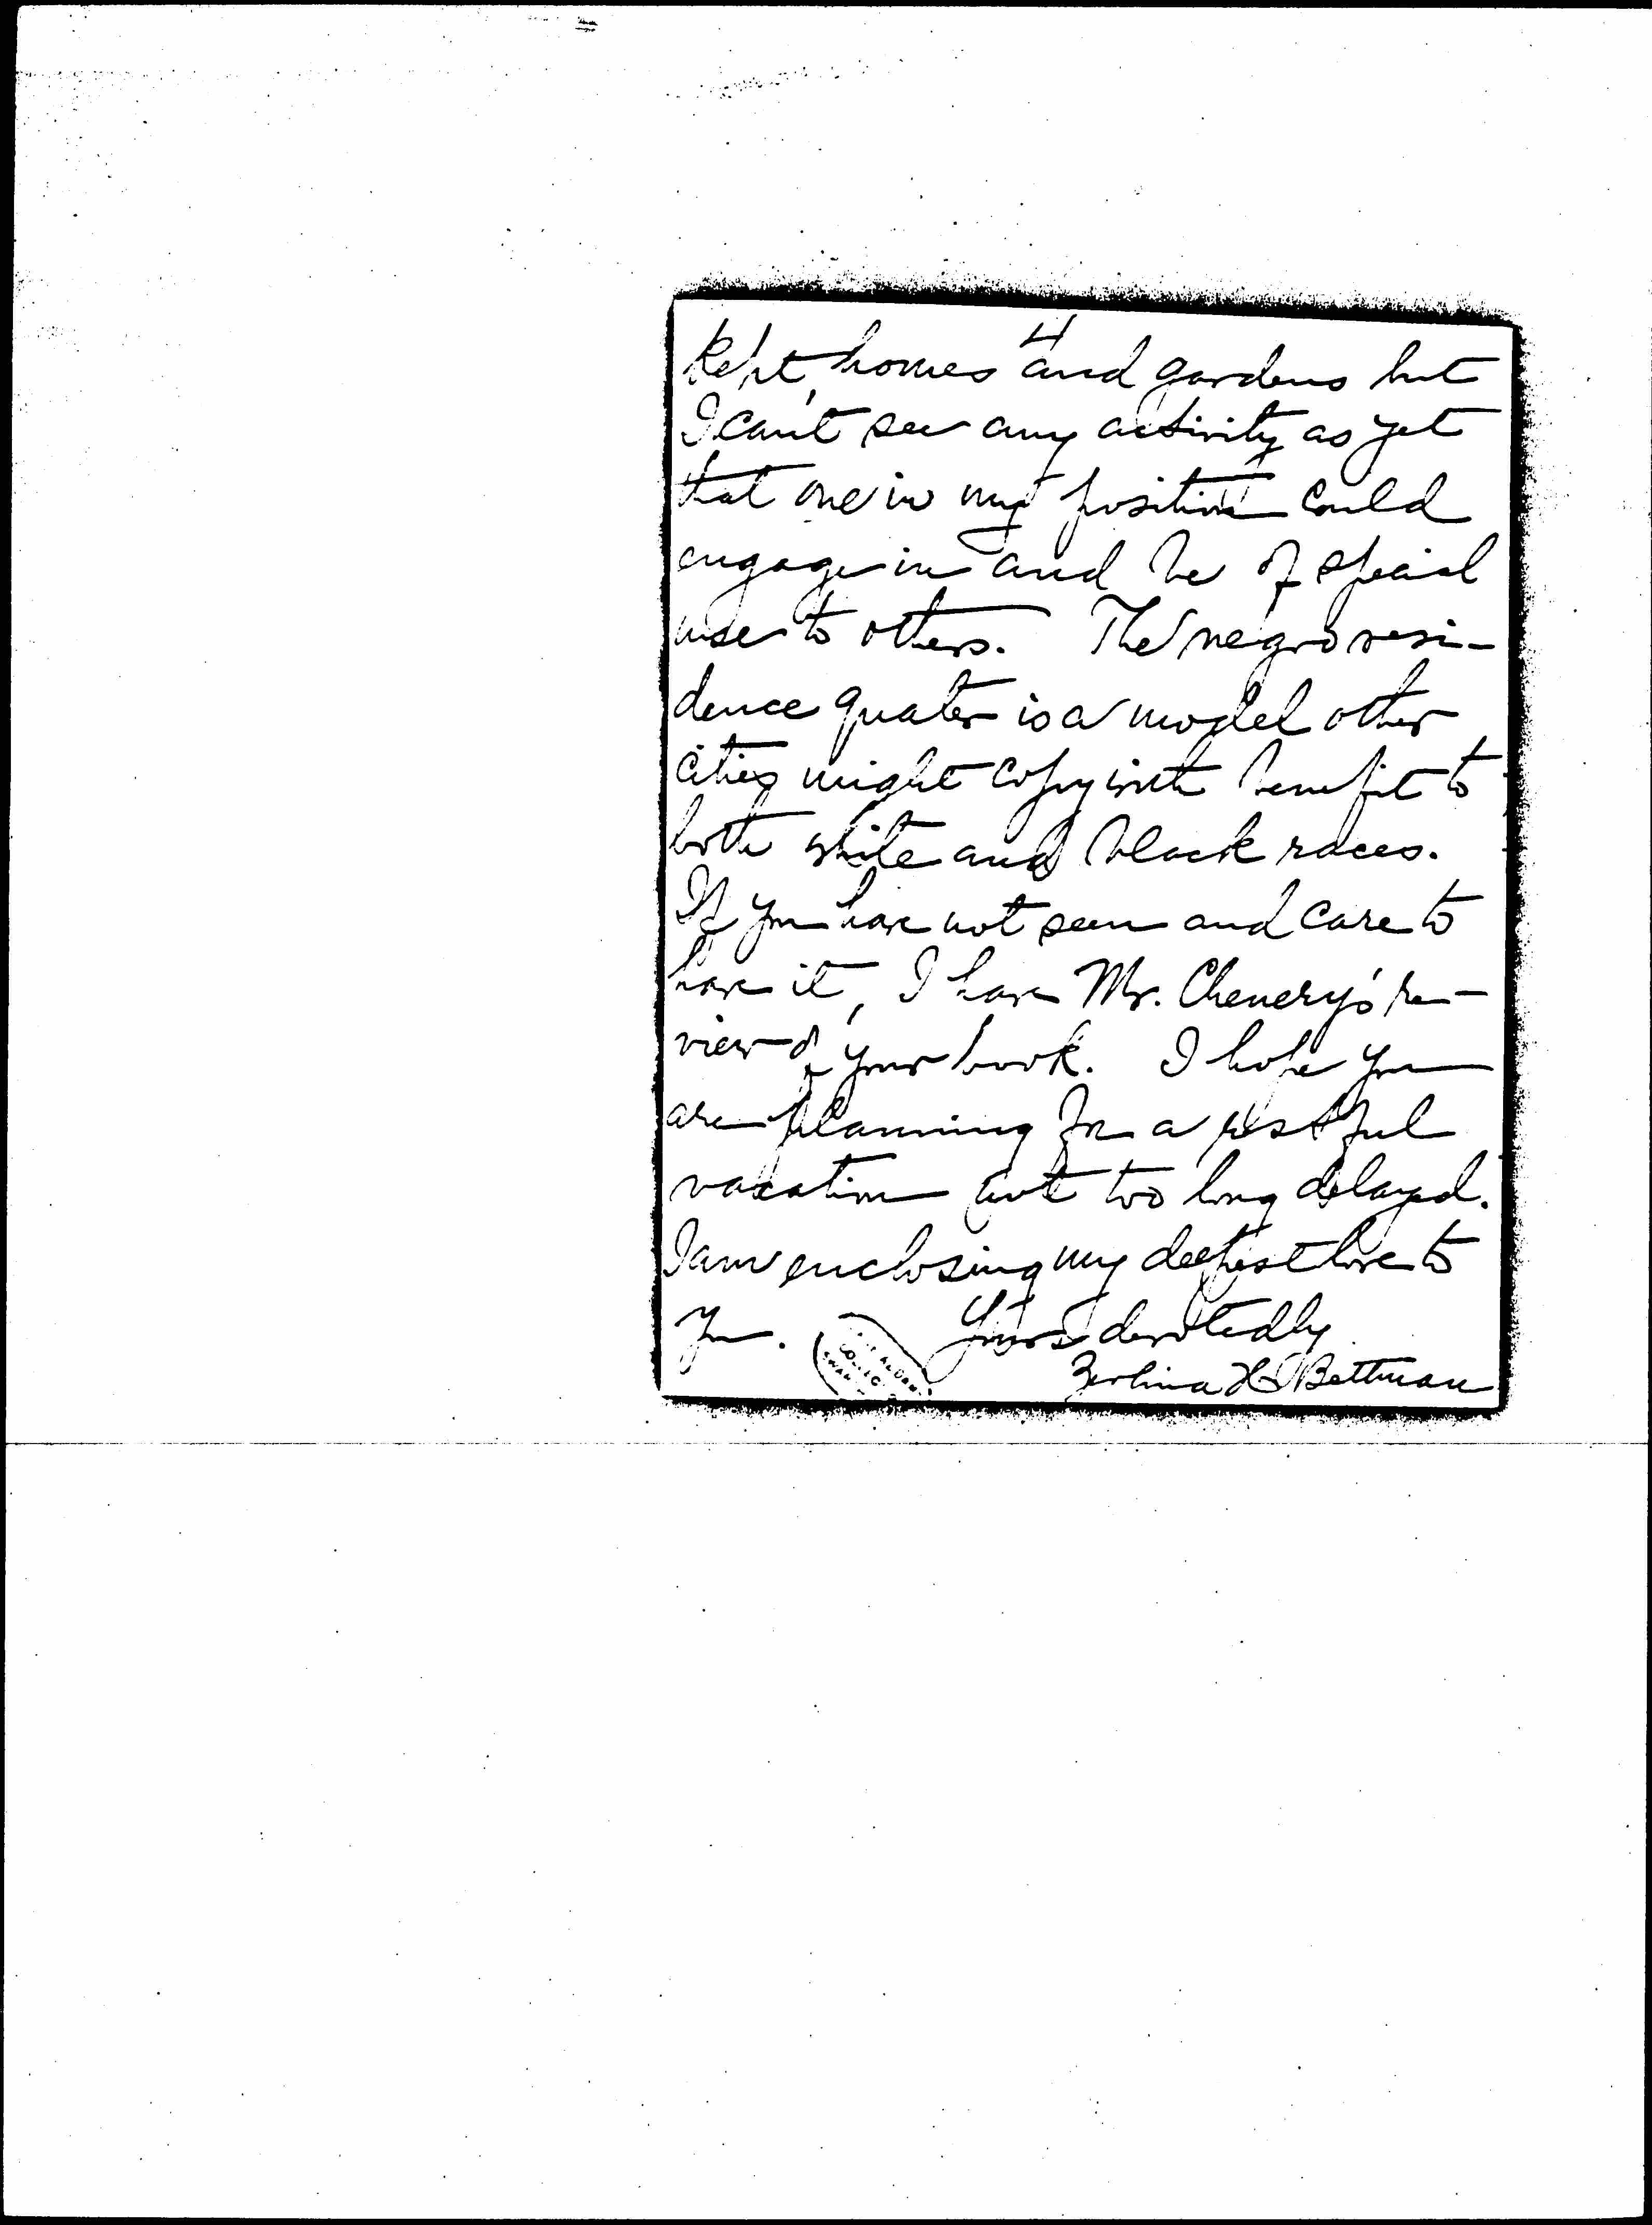 4
kept, homes and gardens but
I can't see any activity as yet
that one in my position could
engage in and be of special
use to others. The negro resi-
dence quater is a model other
cities might copy with benefit to
both white and black races.
If you have not seen and care to
have it, I have Mr. Chenery's re-
view of your book. I hope you
are planning for a restful
vacation not too long delayed.
I am enclosing my deepest love to
you. Yours devotedly
Zerlina H Bettman